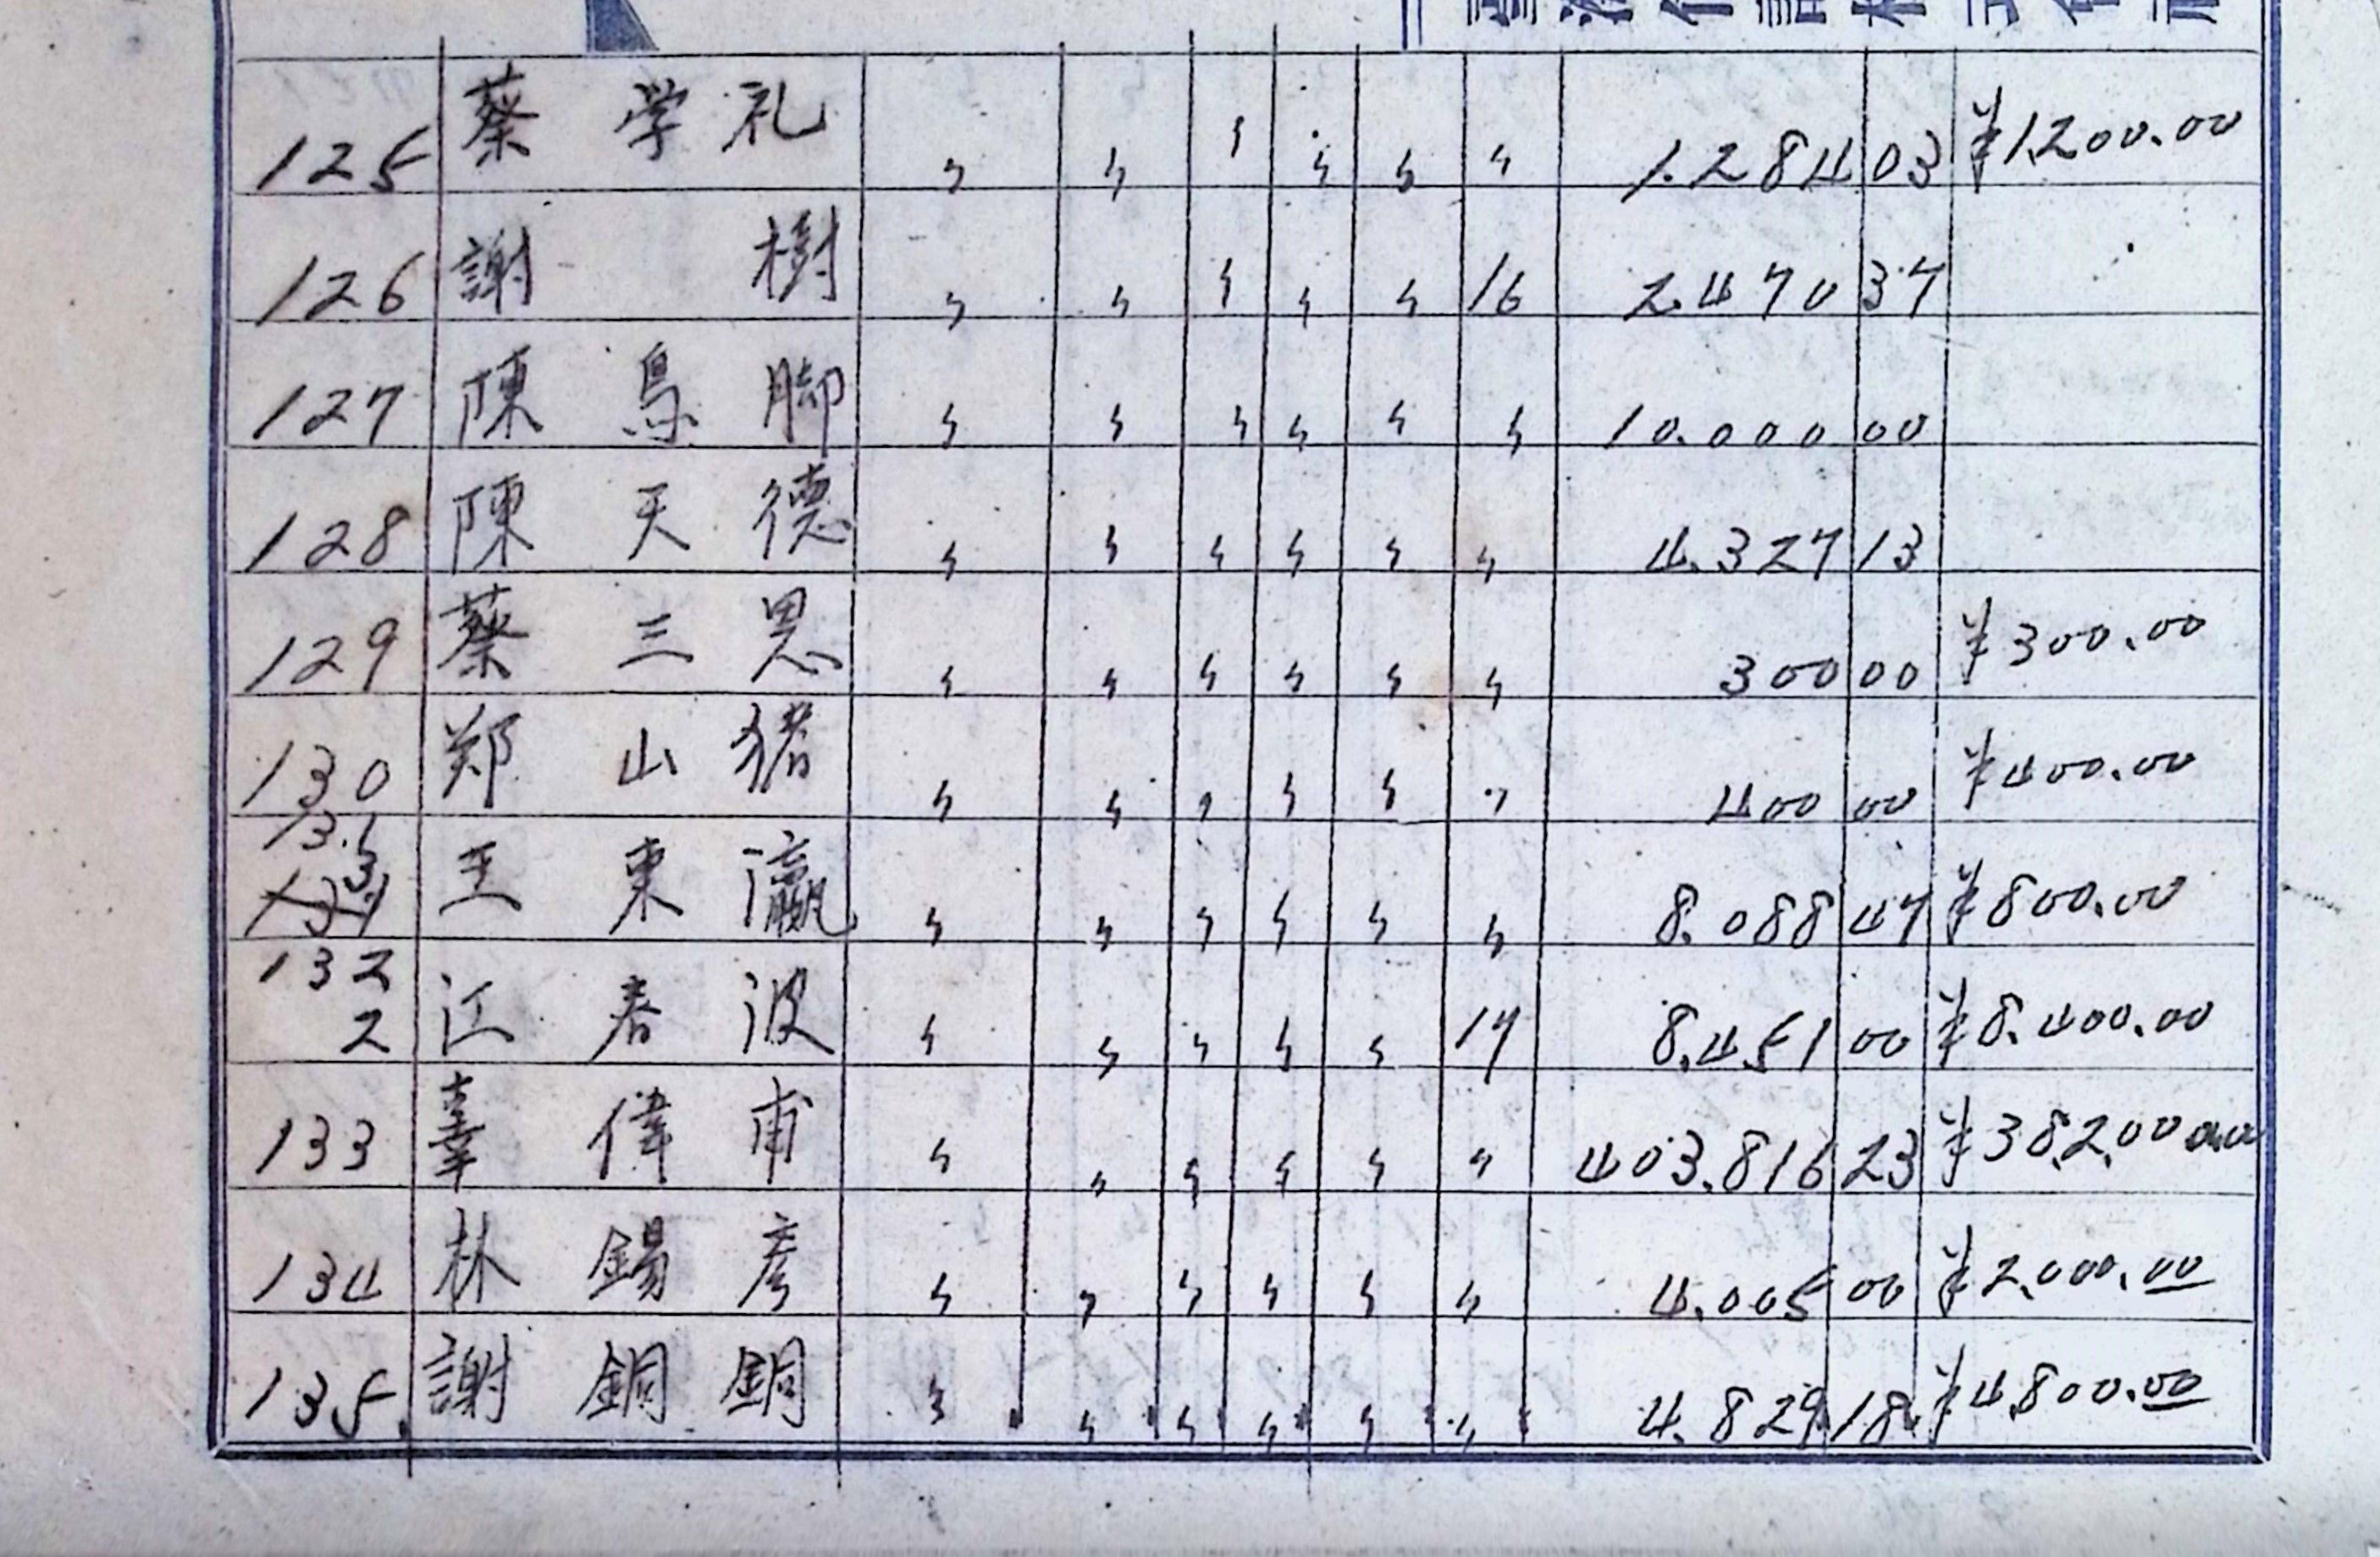 125 蔡学礼 〃 〃 〃 〃 〃 〃 1.284 03 ¥1,200.00
126 謝樹 〃 〃 〃 〃 〃 16 2.470 37
127 陳鳥脚 〃 〃 〃 〃 〃 〃 10.000 00
128 陳天德 〃 〃 〃 〃 〃 〃 4.327 13
129 蔡三恩 〃 〃 〃 〃 〃 〃 300 00 ¥300.00
130 郑山猪 〃 〃 〃 〃 〃 〃 400 00 ¥400.00
131 王東瀛 〃 〃 〃 〃 〃 〃 8.088 47 ¥800.00
132
2 江春波 〃 〃 〃 〃 〃 17 8.451 00 ¥8.400.00
133 辜偉甫 〃 〃 〃 〃 〃 〃 403.816 23 ¥382,00
134 林錫彦 〃 〃 〃 〃 〃 〃 4.005 00 ¥2,000.00
135. 謝銅銅 〃 〃 〃 〃 〃 〃 4.829 18. ¥4,800.00